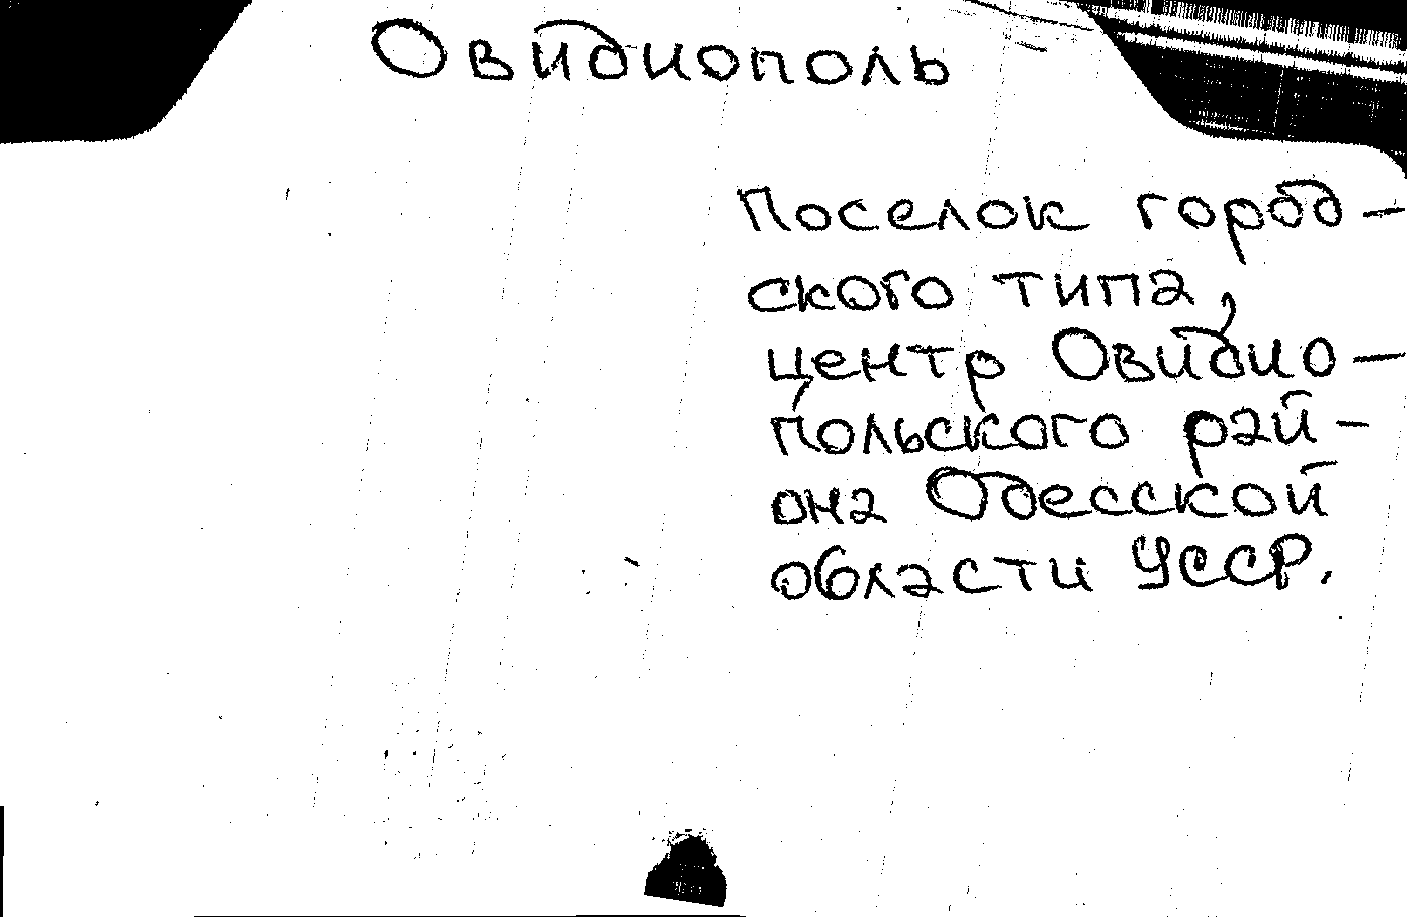 Овидиополь
Поселок город-
ского типа,
центр Овидио-
польского рай-
она Одесской
области УССР.